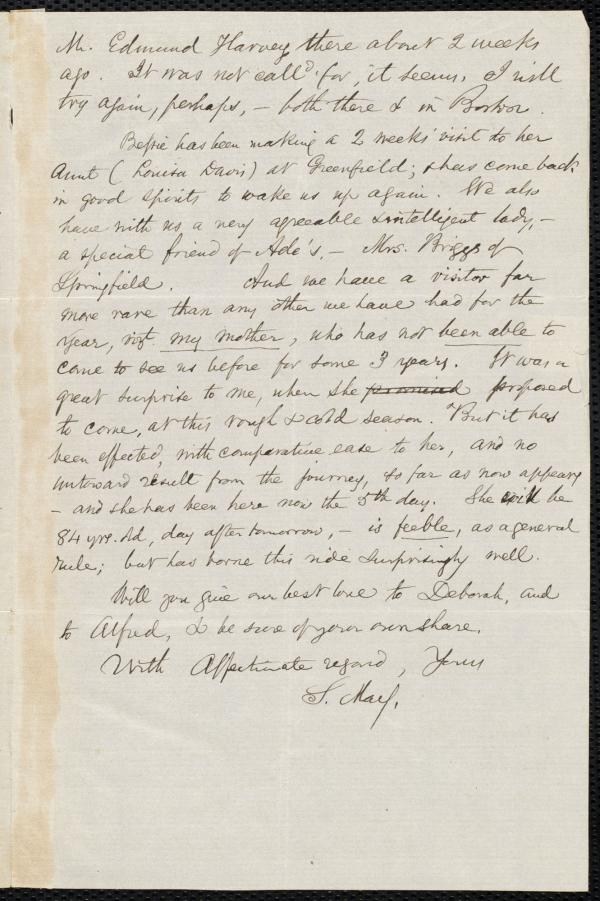 Mr. Edmund Harvey there about 2 weeks
ago. It was not call'd for, it seems. I will
try again, perhaps, – both there & in Boston.
Bessie has been making a 2 weeks' visit to her
Aunt (Louisa Davis) at Greenfield; & has come back
in good spirits to wake us up again. We also
have with us a very agreeable & intelligent lady, –
a special friend of Ade's, – Mrs. Briggs of
Springfield. And we have a visitor far
more rare than any other we have had for the
year, viz. my mother, who has not been able to
come to see us before for some 3 years. It was a
great surprise to me, when she promised proposed
to come, at this rough & cold season. But it has
been effected, with comparative ease to her, and no
untoward result from the journey, so far as now appears
– and she has been here now the 5th day. She will be
84 yrs. old, day after tomorrow, – is feeble, as a general
rule; but has borne this ride surprisingly well.
Will you give our best love to Deborah, and
to Alfred, & be sure of your own share.
With Affectionate regard, Yours
S. May.